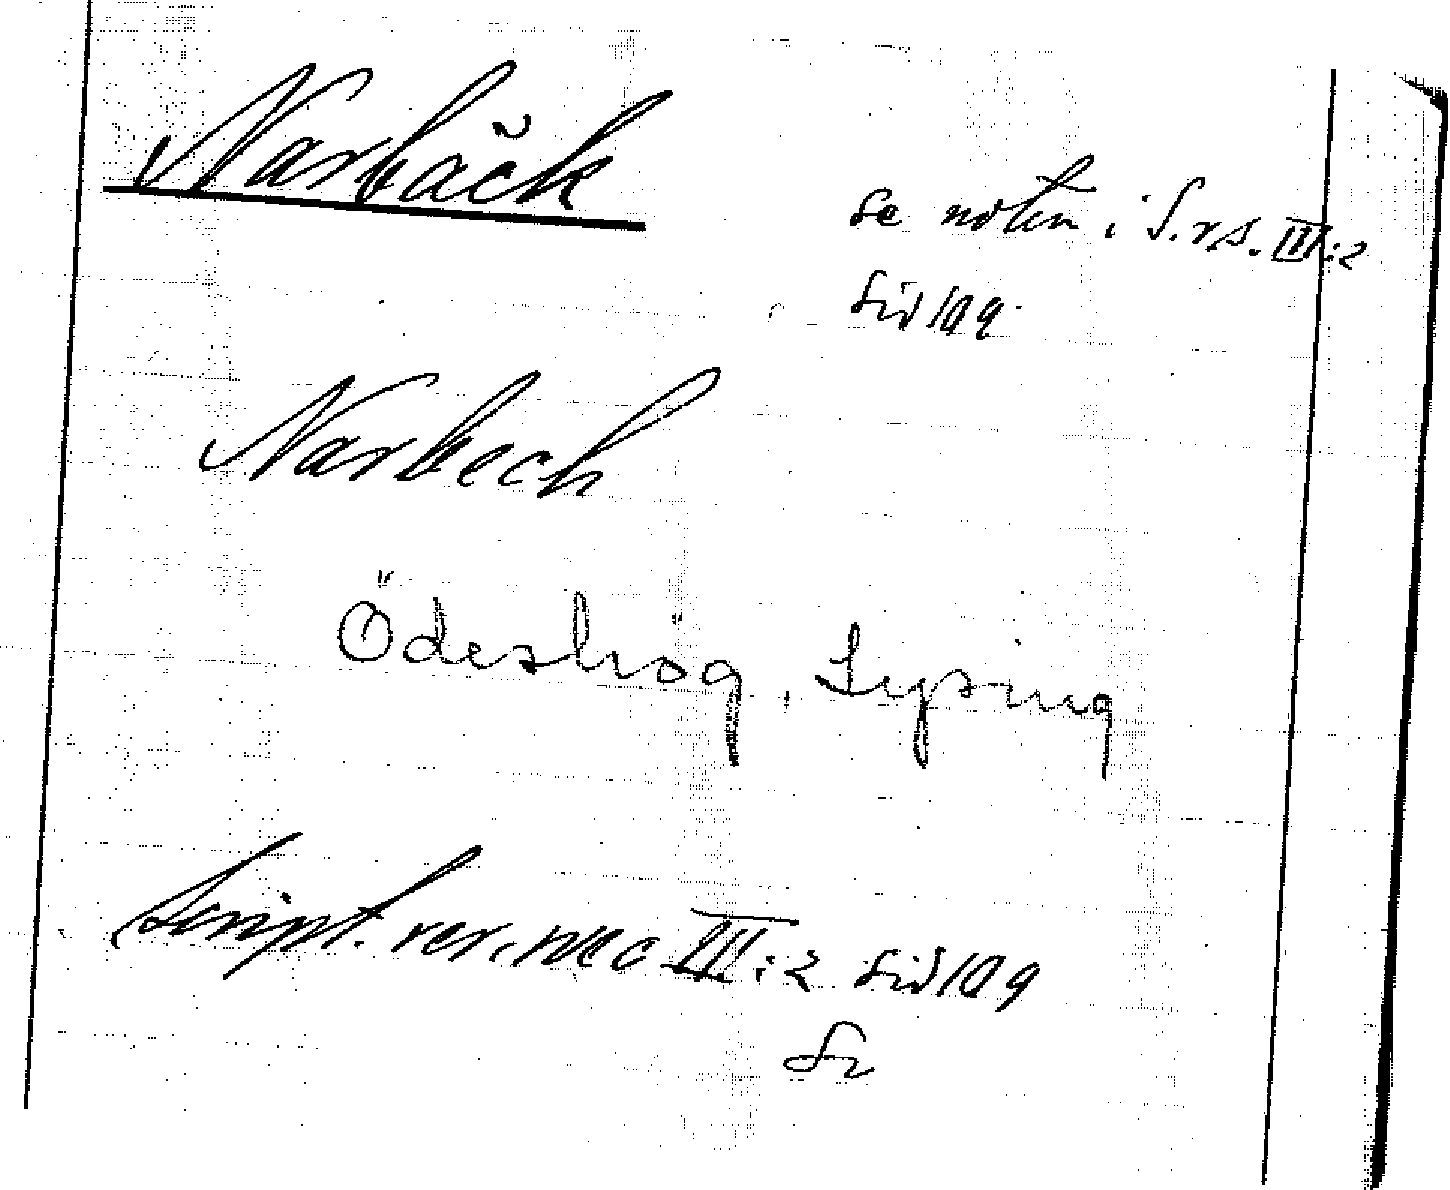 Narbäck
se noten i S.r.s. III:2
sid 109
Narbech
Ödeshög, Lysing
Script. rer. svec III:2 sid 109